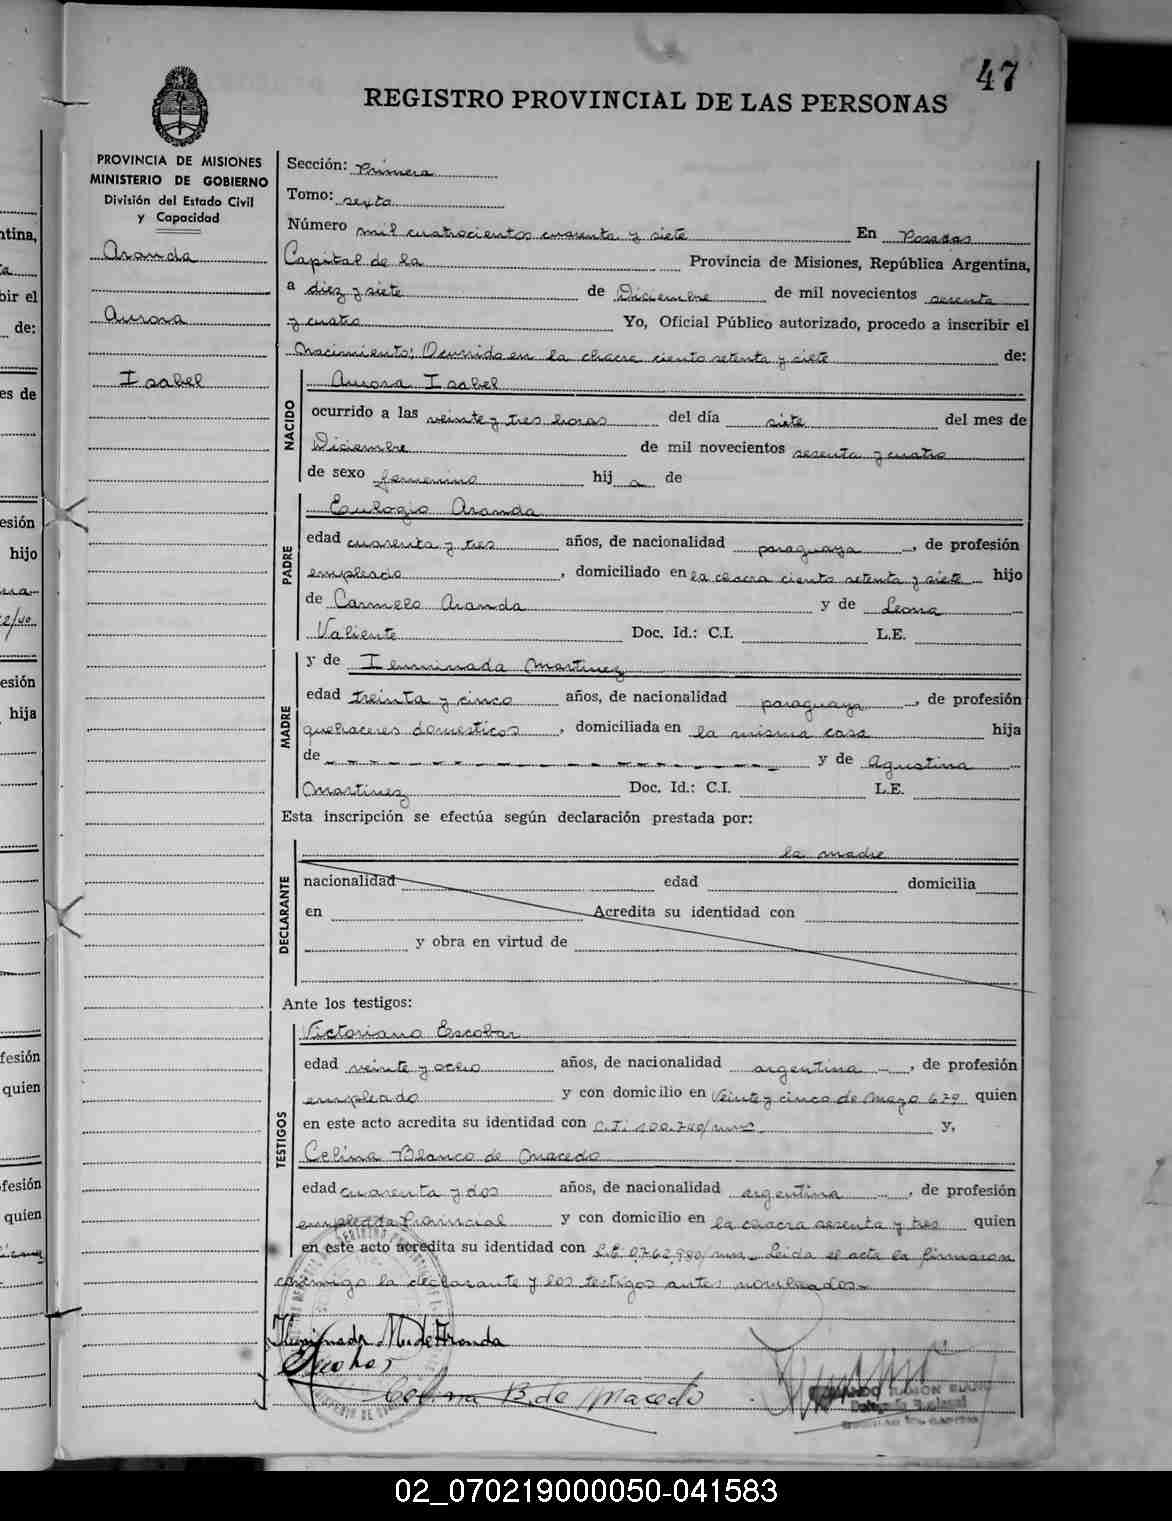 47
REGISTRO PROVINCIAL DE LAS PERSONAS
PROVINCIA DE MISIONES
MINISTERIO DE GOBIERNO
División del Estado Civil
y Capacidad
Aranda
Aurora
Isabel
Sección: Primera
Tomo: sexto
Número mil cuatrocientos cuarenta y siete En Posadas
Capital de la Provincia de Misiones, República Argentina,
a diez y siete de Diciembre de mil novecientos sesenta
y cuatro Yo, Oficial Público autorizado, procedo a inscribir el
Nacimiento: Ocurrido en la chacra ciento setenta y siete de:
NACIDO
Aurora Isabel
ocurrido a las veinte y tres horas del día siete del mes de
Diciembre de mil novecientos sesenta y cuatro
de sexo femenino hij a de
PADRE
Eulogio Aranda
edad cuarenta y tres años, de nacionalidad paraguaya, de profesión
empleado, domiciliado en la chacra ciento setenta y siete hijo
de Carmelo Aranda y de Leona
Valiente Doc. Id.: C.I. L.E.
MADRE
y de Iluminada Martinez
edad treinta y cinco años, de nacionalidad paraguaya, de profesión
quehaceres domesticos, domiciliada en la misma casa hija
de y de Agustina
Martinez Doc. Id.: C.I. L.E.
Esta inscripción se efectúa según declaración prestada por:
DECLARANTE
la madre
nacionalidad edad domicilia
en Acredita su identidad con
y obra en virtud de
Ante los testigos:
TESTIGOS
Victoriano Escobar
edad veinte y ocho años, de nacionalidad argentina, de profesión
empleado y con domicilio en Veinte y cinco de Mayo 679 quien
en este acto acredita su identidad con C.I. 100.740/mns y,
Celina Blanco de Macedo
edad cuarenta y dos años, de nacionalidad argentina, de profesión
empleada Provincial y con domicilio en la chacra sesenta y tres quien
en este acto acredita su identidad con Leida el acta la firmaron
conmigo la declarante y los testigos antes nombrados.
Iluminada M. de Aranda
Escobar
Celina B. de Macedo
02_070219000050-041583